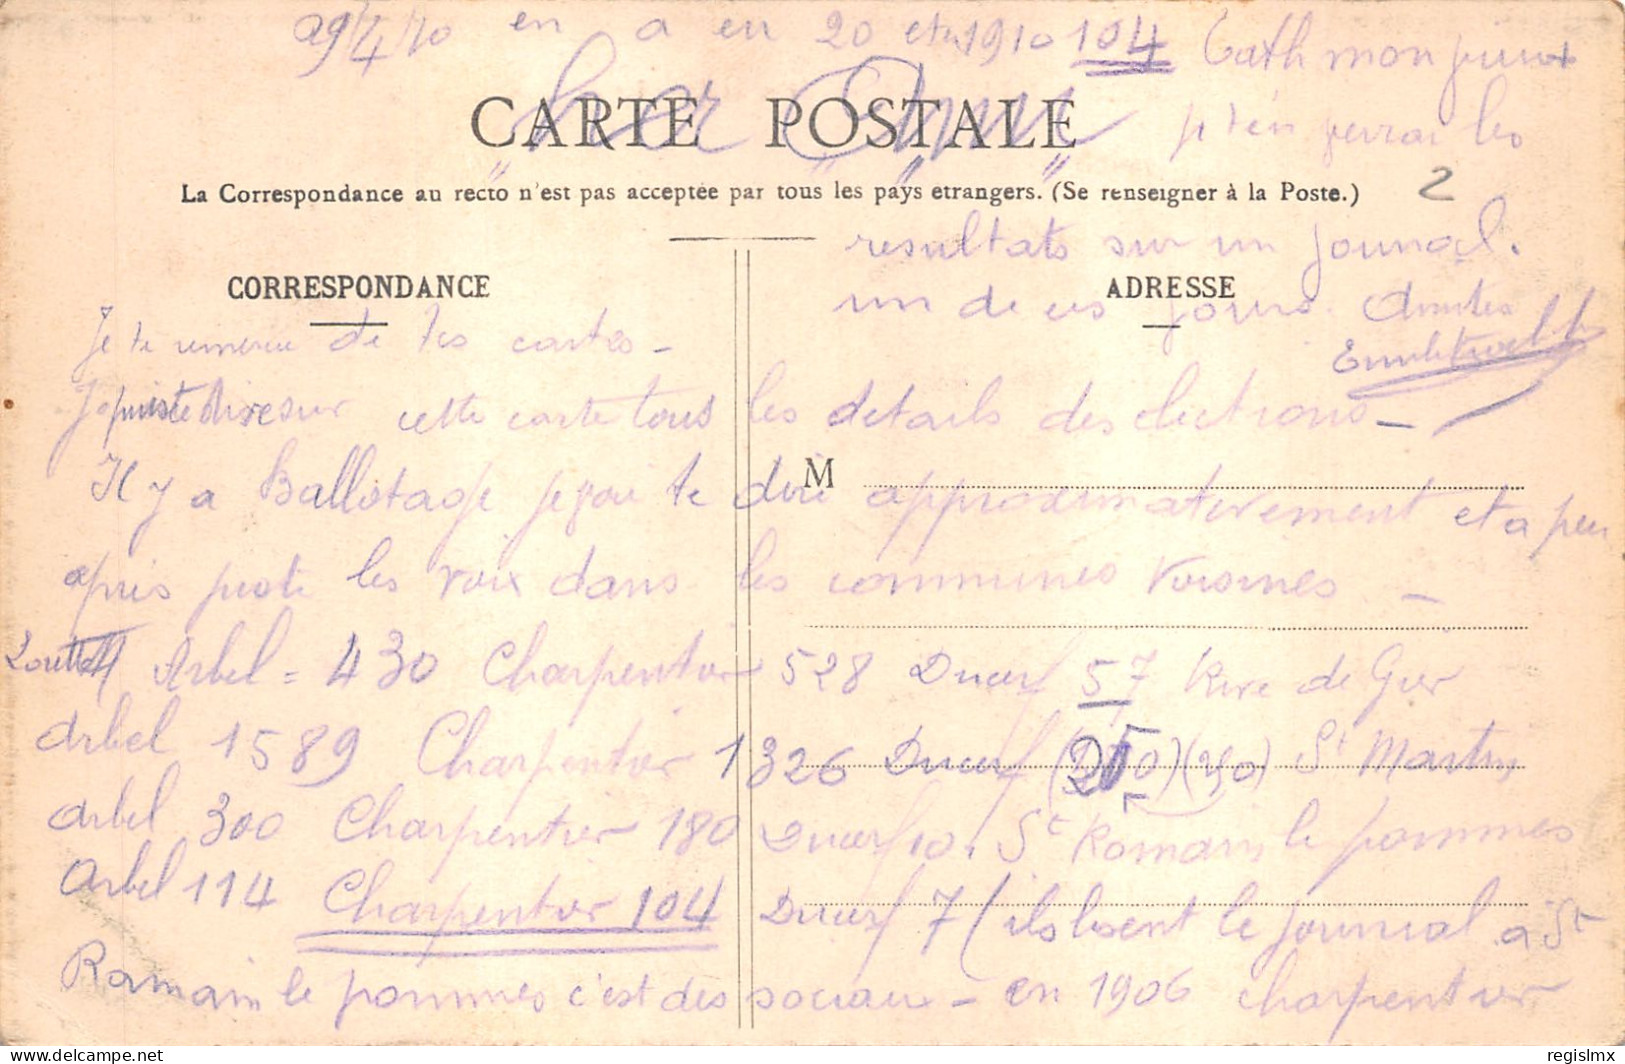 29/4/10 en a en 20 et 1910 104 Cath mon
CARTE POSTALE
les
La Correspondance au recto n'est pas acceptée par tous les pays etrangers. (Se renseigner à la Poste.)
2
resultats sur un journal.
CORRESPONDANCE
ADRESSE
un de ces jours. Amities
Je te remercie de tes cartes -
Je puis te dire sur cette carte tous les details des elections -
M
Il y a Ballotage je vais te dire approximativement et a peu
apris juste les voix dans les communes voisines -
Lorette Arbel = 430 Charpentier 528 Ducarf 57 Rive de Gier
Arbel 1589 Charpentier 1326 Ducarf (250) (250) St Martin
Arbel 300 Charpentier 180 Ducarf 10. St Romain le pommes
Arbel 114 Charpentier 104 Ducarf 7 (ils lisent le journal a St
Romain le pommes c'est des sociaux - en 1906 charpentier
regislmx